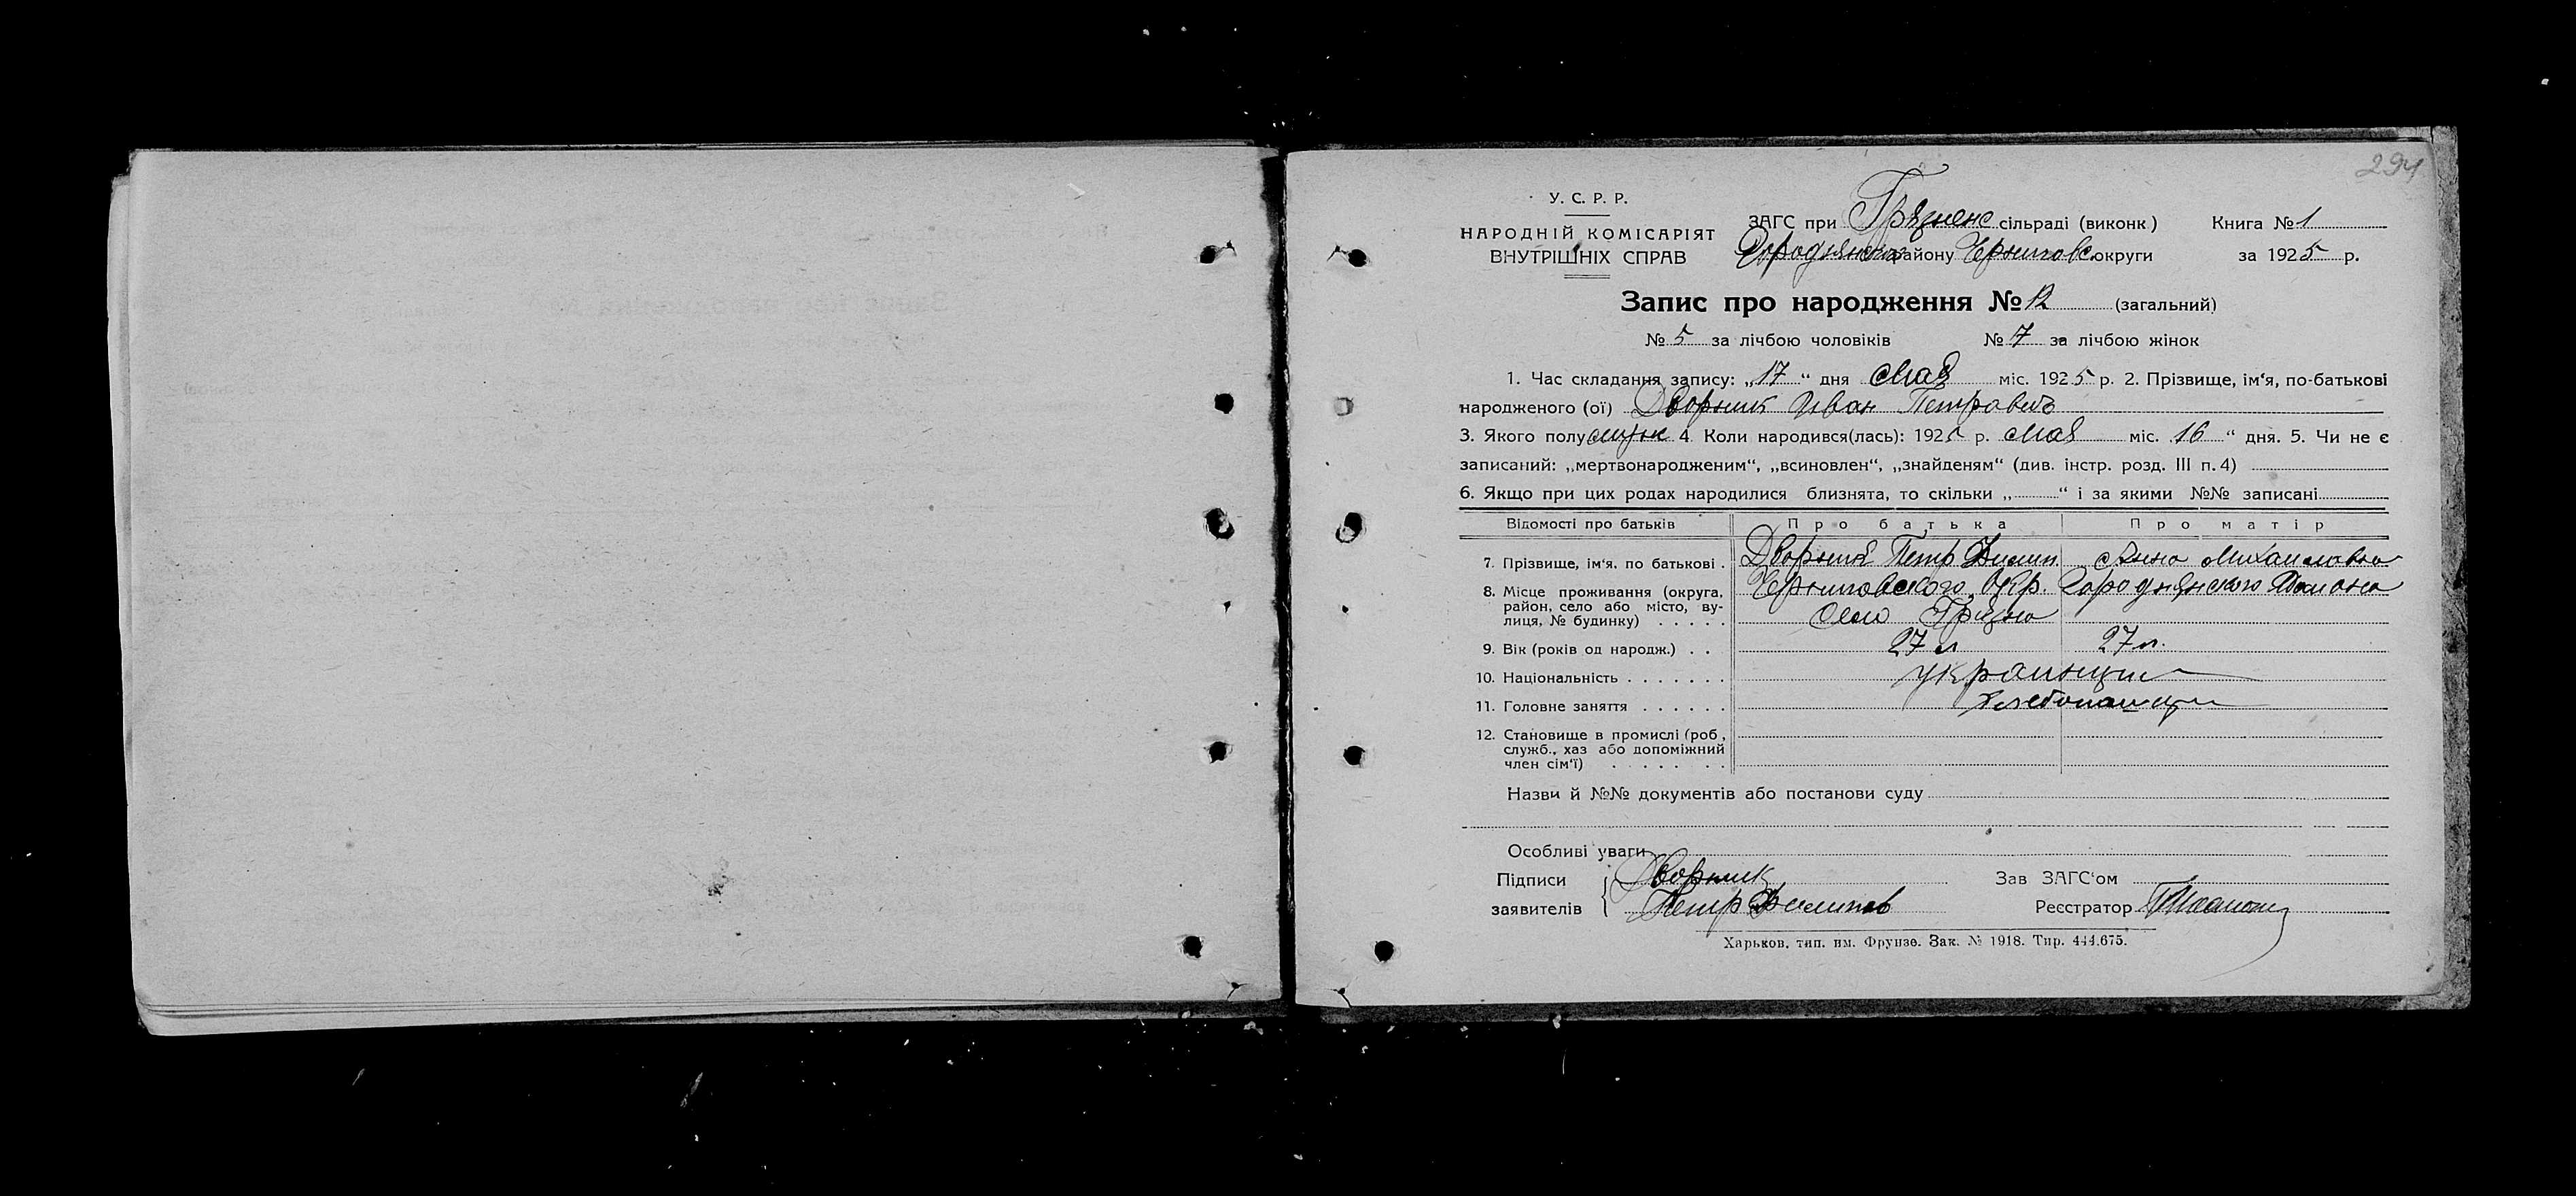 294
У. С. Р. Р.
НАРОДНІЙ КОМІСАРІЯТ
ВНУТРІШНІХ СПРАВ
ЗАГС при Грязненс сільраді (виконк.)
Городнянского району Черниговс. округи
Книга № 1
за 1925 р.
Запис про народження № 12 (загальний)
№ 5 за лічбою чоловіків № 7 за лічбою жінок
1. Час складання запису: „17“ дня Мая міс. 1925 р. 2. Прізвище, ім‘я, по-батькові
народженого (ої) Дворник Иван Петрович
3. Якого полу муж 4. Коли народився(лась): 1925 р. Мая міс. 16“ дня. 5. Чи не є
записаний: „мертвонародженим“, „всиновлен“, „знайденям“ (див. інстр. розд. III п. 4)
6. Якщо при цих родах народилися близнята, то скільки „ “ і за якими №№ записані
Відомості про батьків Про батька Про матір
7. Прізвище, ім‘я, по батькові . Дворник Петр Филип Анна Михайловна
8. Місце проживання (округа, Черниговского Окр. Городнянского Района
район, село або місто, ву-
лиця, № будинку) . . . . . Село Грязно
9. Вік (років од народж.) . . 27 л 27 л.
10. Національність . . . . . . . украинци
11. Головне заняття . . . . . . Хлебопашци
12. Становище в промислі (роб.,
служб., хаз або допоміжний
член сім‘ї) . . . . . . .
Назви й №№ документів або постанови суду
Особливі уваги
Підписи Дворник Зав ЗАГС‘ом
заявителів Петр Филипов Реєстратор
Харьков, тип. им. Фрунзе. Зак. № 1918. Тир. 444.675.